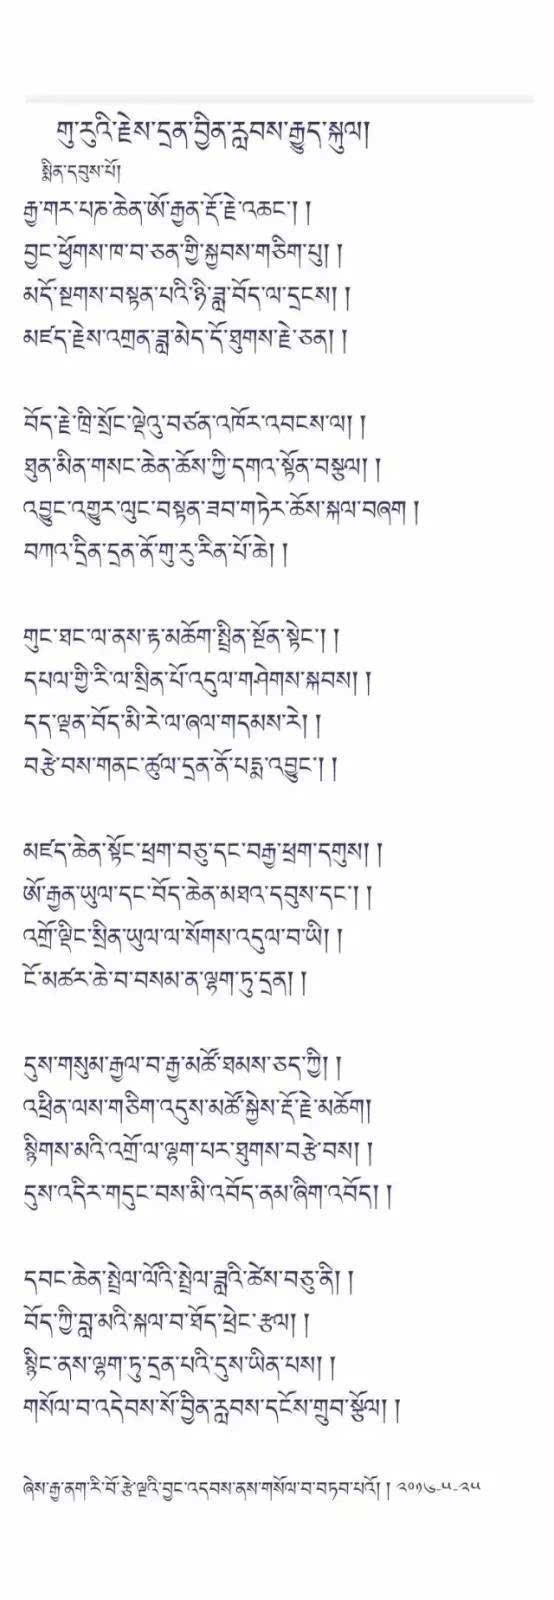 གུ་རུའི་རྗེས་དྲན་བྱིན་རླབས་རྒྱུད་སྐུལ།
སྨིན་དབུས་པོ།
རྒྱ་གར་པཎ་ཆེན་ཨོ་རྒྱན་རྡོ་རྗེ་འཆང་། །
བྱང་ཕྱོགས་ཁ་བ་ཅན་གྱི་སྐྱབས་གཅིག་པུ། །
མདོ་སྔགས་བསྟན་པའི་ཉི་ཟླ་བོད་ལ་དྲངས། །
མཛད་རྗེས་འགྲན་ཟླ་མེད་དོ་ཐུགས་རྗེ་ཅན། །
བོད་རྗེ་ཁྲི་སྲོང་ལྡེའུ་བཙན་འཁོར་འབངས་ལ། །
ཐུན་མིན་གསང་ཆེན་ཆོས་ཀྱི་དགའ་སྟོན་བསྩལ། །
འབྱུང་འགྱུར་ལུང་བསྟན་ཟབ་གཏེར་ཆོས་སྐལ་བཞག །
བཀའ་དྲིན་དྲན་ནོ་གུ་རུ་རིན་པོ་ཆེ། །
གུང་ཐང་ལ་ནས་རྟ་མཆོག་སྤྲིན་སྔོན་སྟེང་། །
དཔལ་གྱི་རི་ལ་སྲིན་པོ་འདུལ་གཤེགས་སྐབས། །
དད་ལྡན་བོད་མི་རེ་ལ་ཞལ་གདམས་རེ། །
བརྩེ་བས་གནང་ཚུལ་དྲན་ནོ་པདྨ་འབྱུང་། །
མཛད་ཆེན་སྟོང་ཕྲག་བཅུ་དང་བརྒྱ་ཕྲག་དགུས། །
ཨོ་རྒྱན་ཡུལ་དང་བོད་ཆེན་མཐའ་དབུས་དང་། །
འགྲོ་ལྡིང་སྲིན་ཡུལ་ལ་སོགས་འདུལ་བ་ཡི། །
ངོ་མཚར་ཆེ་བ་བསམ་ན་ལྷག་ཏུ་དྲན། །
དུས་གསུམ་རྒྱལ་བ་རྒྱ་མཚོ་ཐམས་ཅད་ཀྱི། །
འཕྲིན་ལས་གཅིག་འདུས་མཚོ་སྐྱེས་རྡོ་རྗེ་མཆོག།
སྙིགས་མའི་འགྲོ་ལ་ལྷག་པར་ཐུགས་བརྩེ་བས། །
དུས་འདིར་གདུང་བས་མི་འབོད་ནམ་ཞིག་འབོད། །
དབང་ཆེན་སྤྲེལ་ལོའི་སྤྲེལ་ཟླའི་ཚེས་བཅུ་ནི། །
བོད་ཀྱི་བླ་མའི་སྐལ་བ་ཐོད་ཕྲེང་རྩལ། །
སྙིང་ནས་ལྷག་ཏུ་དྲན་པའི་དུས་ཡིན་པས། །
གསོལ་བ་འདེབས་སོ་བྱིན་རླབས་དངོས་གྲུབ་སྩོལ། །
ཞེས་རྒྱ་ནག་རི་བོ་རྩེ་ལྔའི་བྱང་འདབས་ནས་གསོལ་བ་བཏབ་པའོ། ། ༢༠༡༦-༥-༢༥